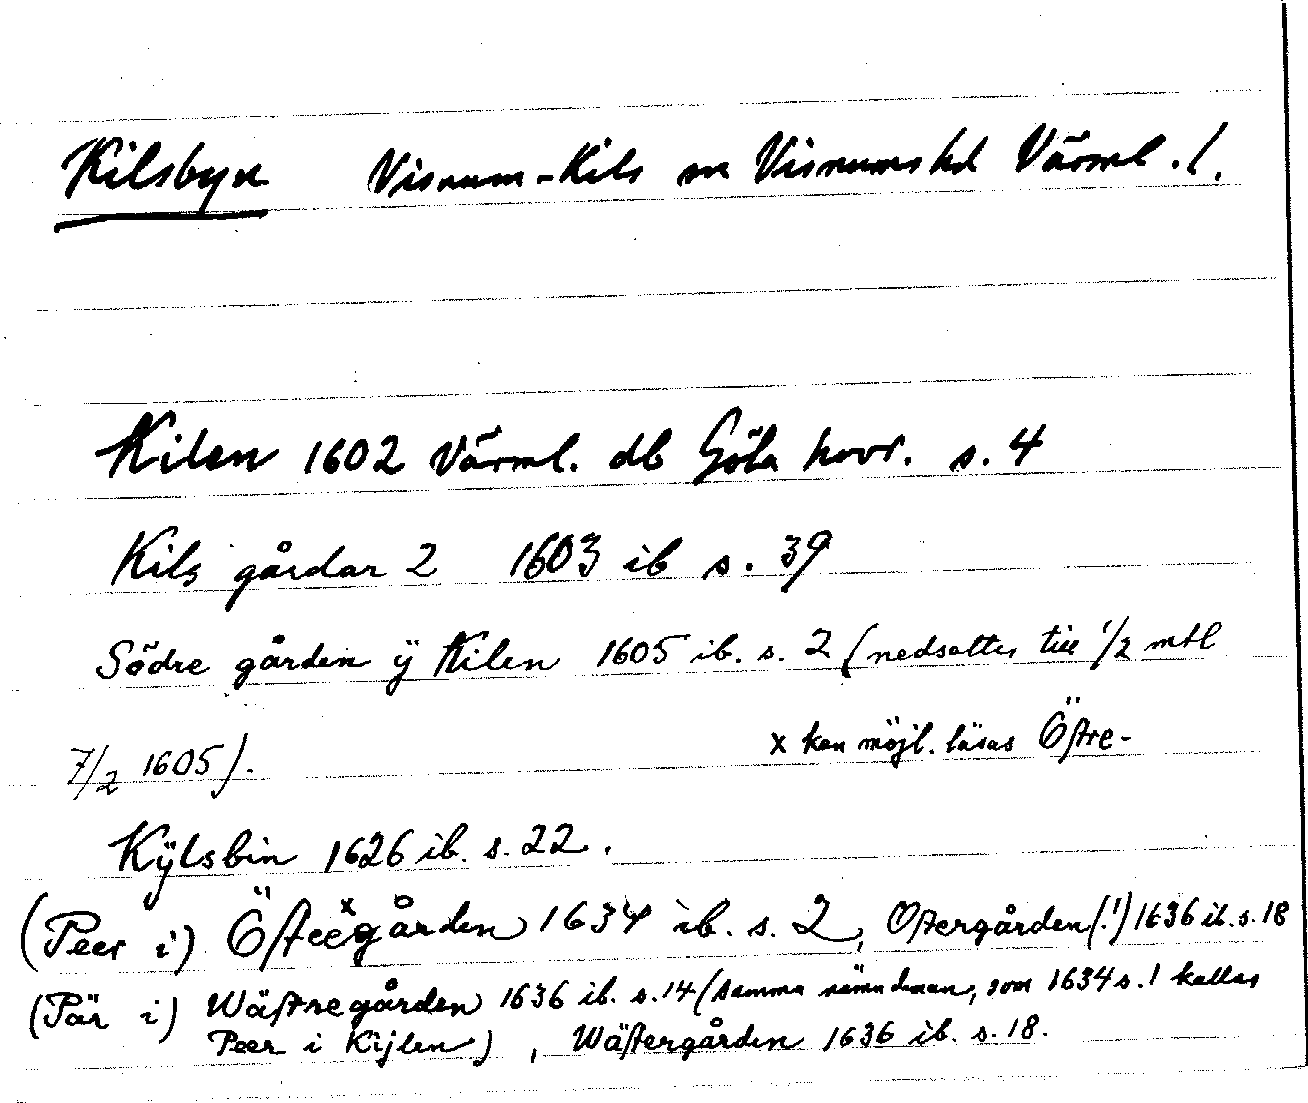 Kilsbyn Visnum-Kils sn Visnums hd Värml. l.
Kilen 1602 Värml. db Göta hovr. s. 4
Kils gårdar 2 1603 ib s. 39
Södre gården ÿ Kilen 1605 ib. s. 2 (nedsattes till 1/2 mtl
7/2 1605).
x kan möjl. läsas Öftre-
Kÿlsbin 1626 ib. s. 22.
(Peer i) Öfteexgården 1634 ib. s. 2, Oftergården(!) 1636 ib. s. 18
(Pär i) Wäftregården 1636 ib. s. 14 (samma nämndeman, som 1634 s. 1 kallas
Peer i Kijlen), Wäftergården 1636 ib. s. 18.